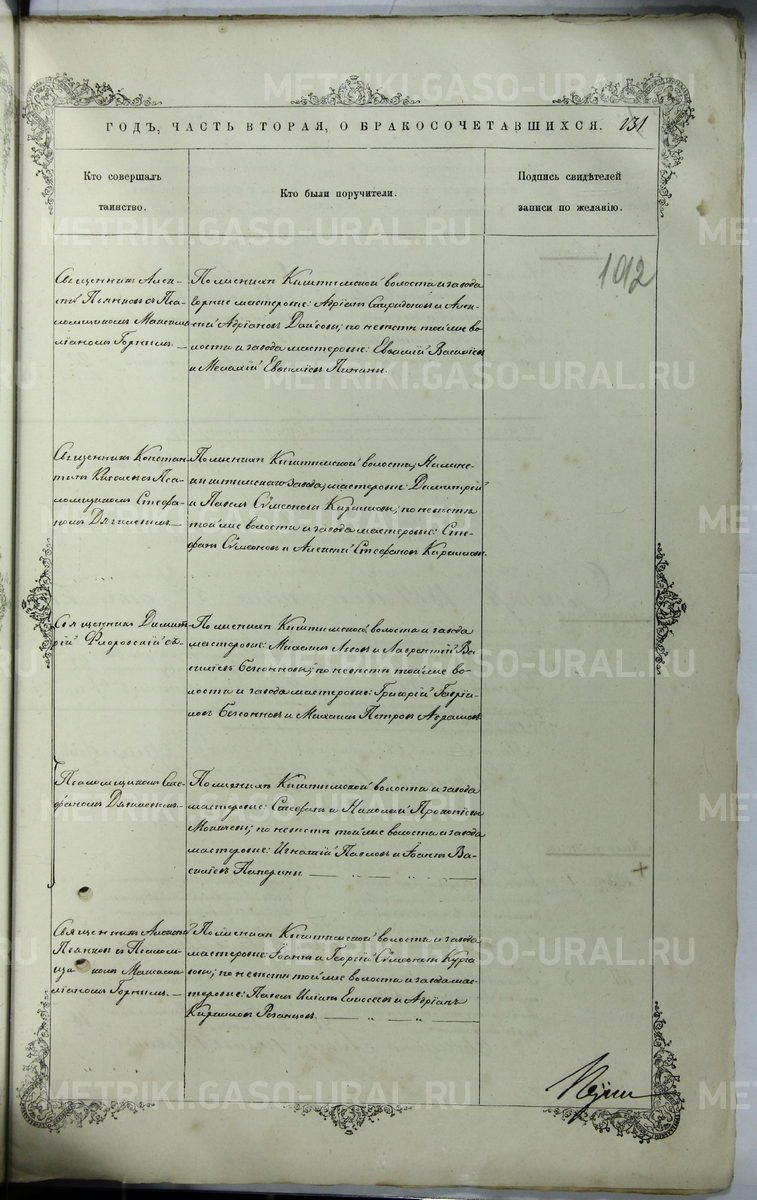 ГОДЪ, ЧАСТЬ ВТОРАЯ, О БРАКОСОЧЕТАВШИХСЯ. 131
Кто совершалъ
таинство.
Кто были поручители.
Подпись свидѣтелей
записи по желанію.
1012
Священникъ Алек-
сѣй Пьянковъ съ Пса-
ломщикомъ Максими-
ліаномъ Горнымъ. —
По женихѣ Киштимской волости и завода
горные мастеровые: Адріанъ Спиридоновъ и Алек-
сѣй Адріановъ; по невѣстѣ той же во-
лости и завода мастеровые: Евѳимій Василіевъ
и Мелатій Евѳиміевъ
Священникъ Констан-
тинъ съ Пса-
ломщикомъ Стефа-
номъ Дягилевымъ —
По женихѣ Киштимской волости, Нижне-
киштимскаго завода, мастеровые: Димитрій
и Павелъ Сѵмеоновы; по невѣстѣ
той же волости и завода мастеровые: Сте-
фанъ Сѵмеоновъ и Алексѣй Стефановъ
Священникъ Димит-
рій Флоровскій съ
По женихѣ Киштимской волости и завода
мастеровые: Михаилъ и Лаврентій Ва-
силіевъ; по невѣстѣ той же во-
лости и завода мастеровые: Григорій Гаврі-
ловъ и Михаилъ Петровъ
Псаломщикомъ Сте-
фаномъ Дягилевымъ.
По женихѣ Киштимской волости и завода
мастеровые: Стефанъ и Николай Прокопіевы
; по невѣстѣ той же волости и завода
мастеровые: Игнатій Павловъ и Іоаннъ Ва-
силіевъ
Священникъ Алексѣй
Пьянковъ съ Псалом-
щикомъ Максими-
ліаномъ Горнымъ. —
По женихѣ Киштимской волости и завода
мастеровые: Іоаннъ и Георгій Сѵмеоновы
; по невѣстѣ той же волости и завода мас-
теровые: Павелъ Елисеевъ и Адріанъ
METRIKI.GASO-URAL.RU